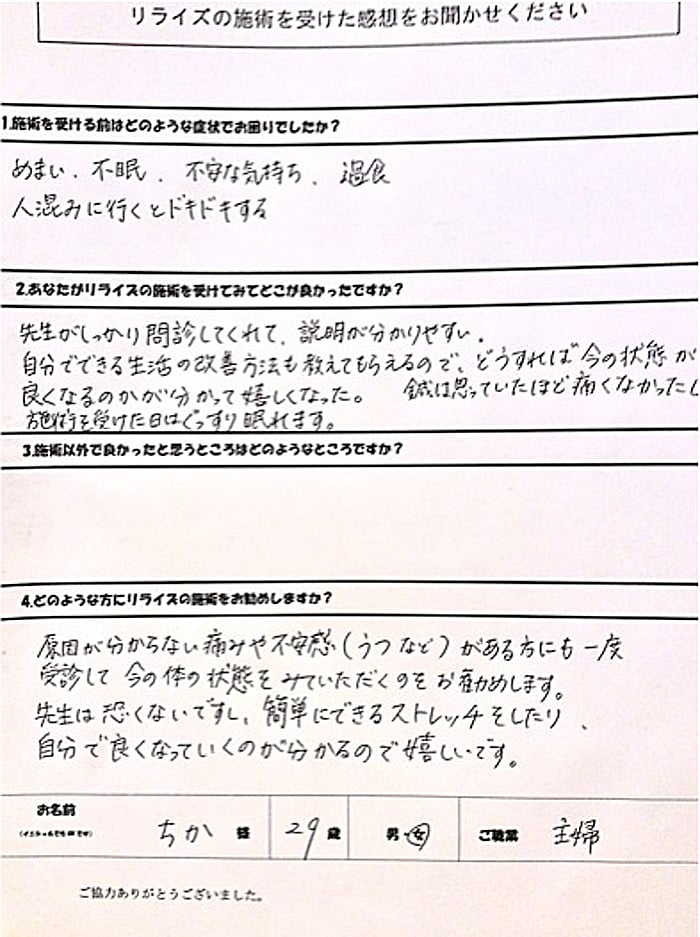 リライズの施術を受けた感想をお聞かせください
1.施術を受ける前はどのような症状でお困りでしたか？
めまい、不眠、不安な気持ち、過食
人混みに行くとドキドキする
2.あなたがリライズの施術を受けてみてどこが良かったですか？
先生がしっかり問診してくれて、説明が分かりやすい。
自分でできる生活の改善方法も教えてもらえるので、どうすれば今の状態が
良くなるのかが分かって嬉しくなった。 鍼は思っていたほど痛くなかったし
施術を受けた日はぐっすり眠れます。
3.施術以外で良かったと思うところはどのようなところですか？
4.どのような方にリライズの施術をお勧めしますか？
原因が分からない痛みや不安感（うつなど）がある方にも一度
受診して今の体の状態をみていただくのをお勧めします。
先生は恐くないですし、簡単にできるストレッチをしたり、
自分で良くなっていくのが分かるので嬉しいです。
お名前 ちか 様 29 歳 男・女 ご職業 主婦
（イニシャルでもOKです）
ご協力ありがとうございました。